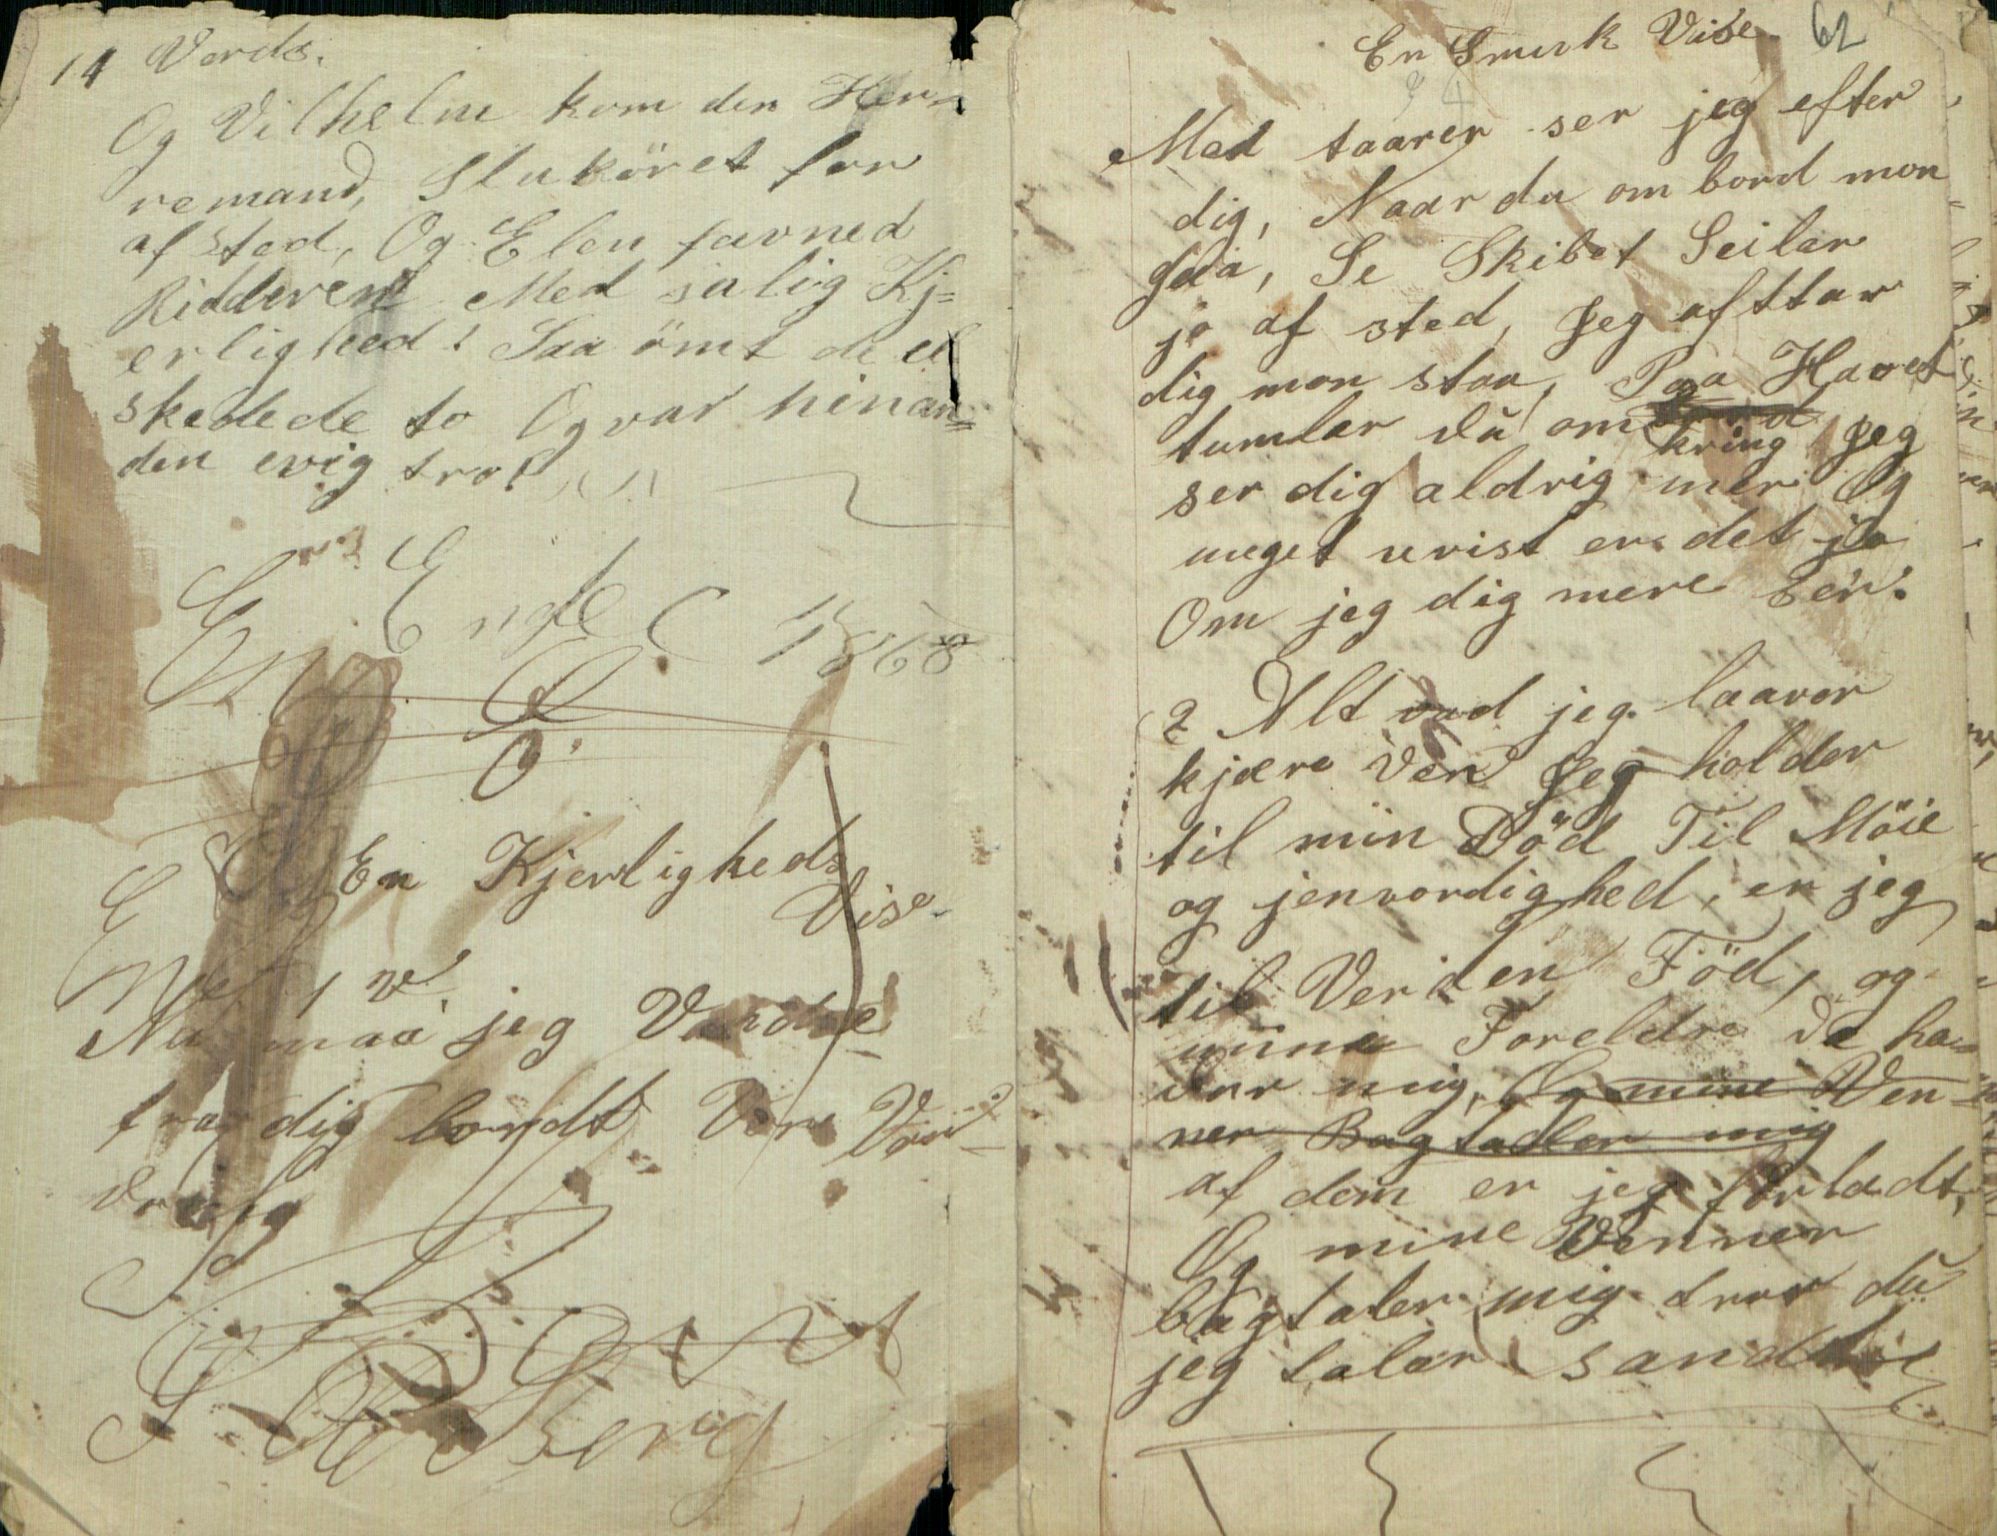 14 Verds.
Og Vilhelm kom den Her=
remand, Sluköret for
af sted, Og Elen favned
Ridderen Med salig Kj=
erlighed! Saa ömt de el
skedede to Og var hinan=
den evig tro!
En Ende 1868
En Kjerligheds
Vise.
1 ve
Nu maa jeg Vandre
fra dig bordt Vor
Berg
En Smuk Vise. 62
Med taarer ser jeg efter
dig, Naar du om bord mon
gaa, Se Skibet Seiler
jo af sted, Jeg efttar
dig mon staa, Paa Havet
tumler du om kring Jeg
ser dig aldrig mer Og
uvist er det jo
Om jeg dig mere Ser.
2 Alt vad jeg laaver
kjære Ven Jeg holder
til min Död Til Möie
og jenvordighed, er jeg
til Verden Föd, og
mine Foreldre de ha=
der mig, Og mine Ven
ner Bagtaller mig
af dem er jeg forladt,
Og mine Venner
bagtaler mig tror du
jeg taler